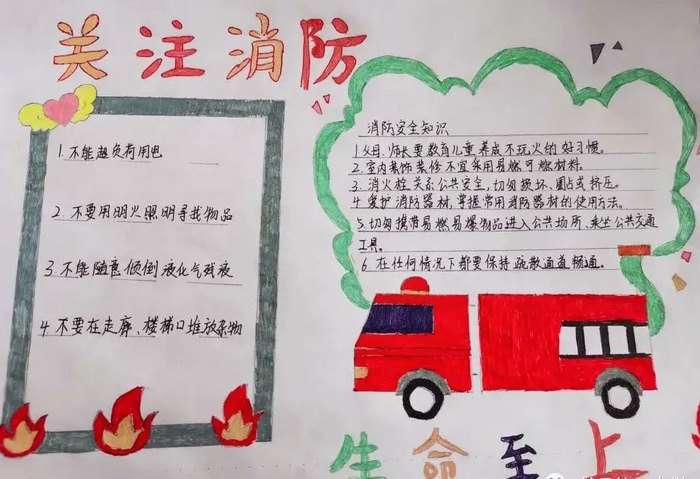 关注消防
1.不能超负荷用电
2.不要用明火照明寻找物品
3.不能随意倾倒液化气残液
4.不要在走廊、楼梯口堆放杂物
消防安全知识
1.父母、师长要教育儿童养成不玩火的好习惯。
2.室内装饰装修不宜采用易燃可燃材料。
3.消火栓关系公共安全,切勿损坏、圈占或挤压。
4.爱护消防器材,掌握常用消防器材的使用方法。
5.切勿携带易燃易爆物品进入公共场所、乘坐公共交通
工具。
6.在任何情况下都要保持疏散通道畅通。
生命至上